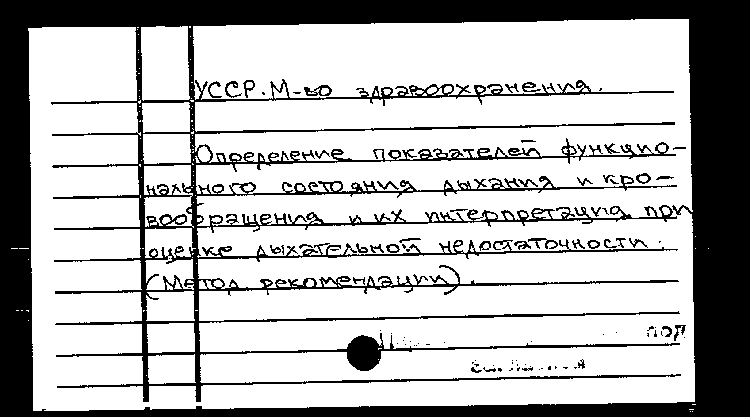 УССР. М-во здравоохранения.
Определение показателей функцио-
нального состояния дыхания и кро-
вообращения и их интерпретация при
оценке дыхательной недостаточности.
(Метод. рекомендации).
под